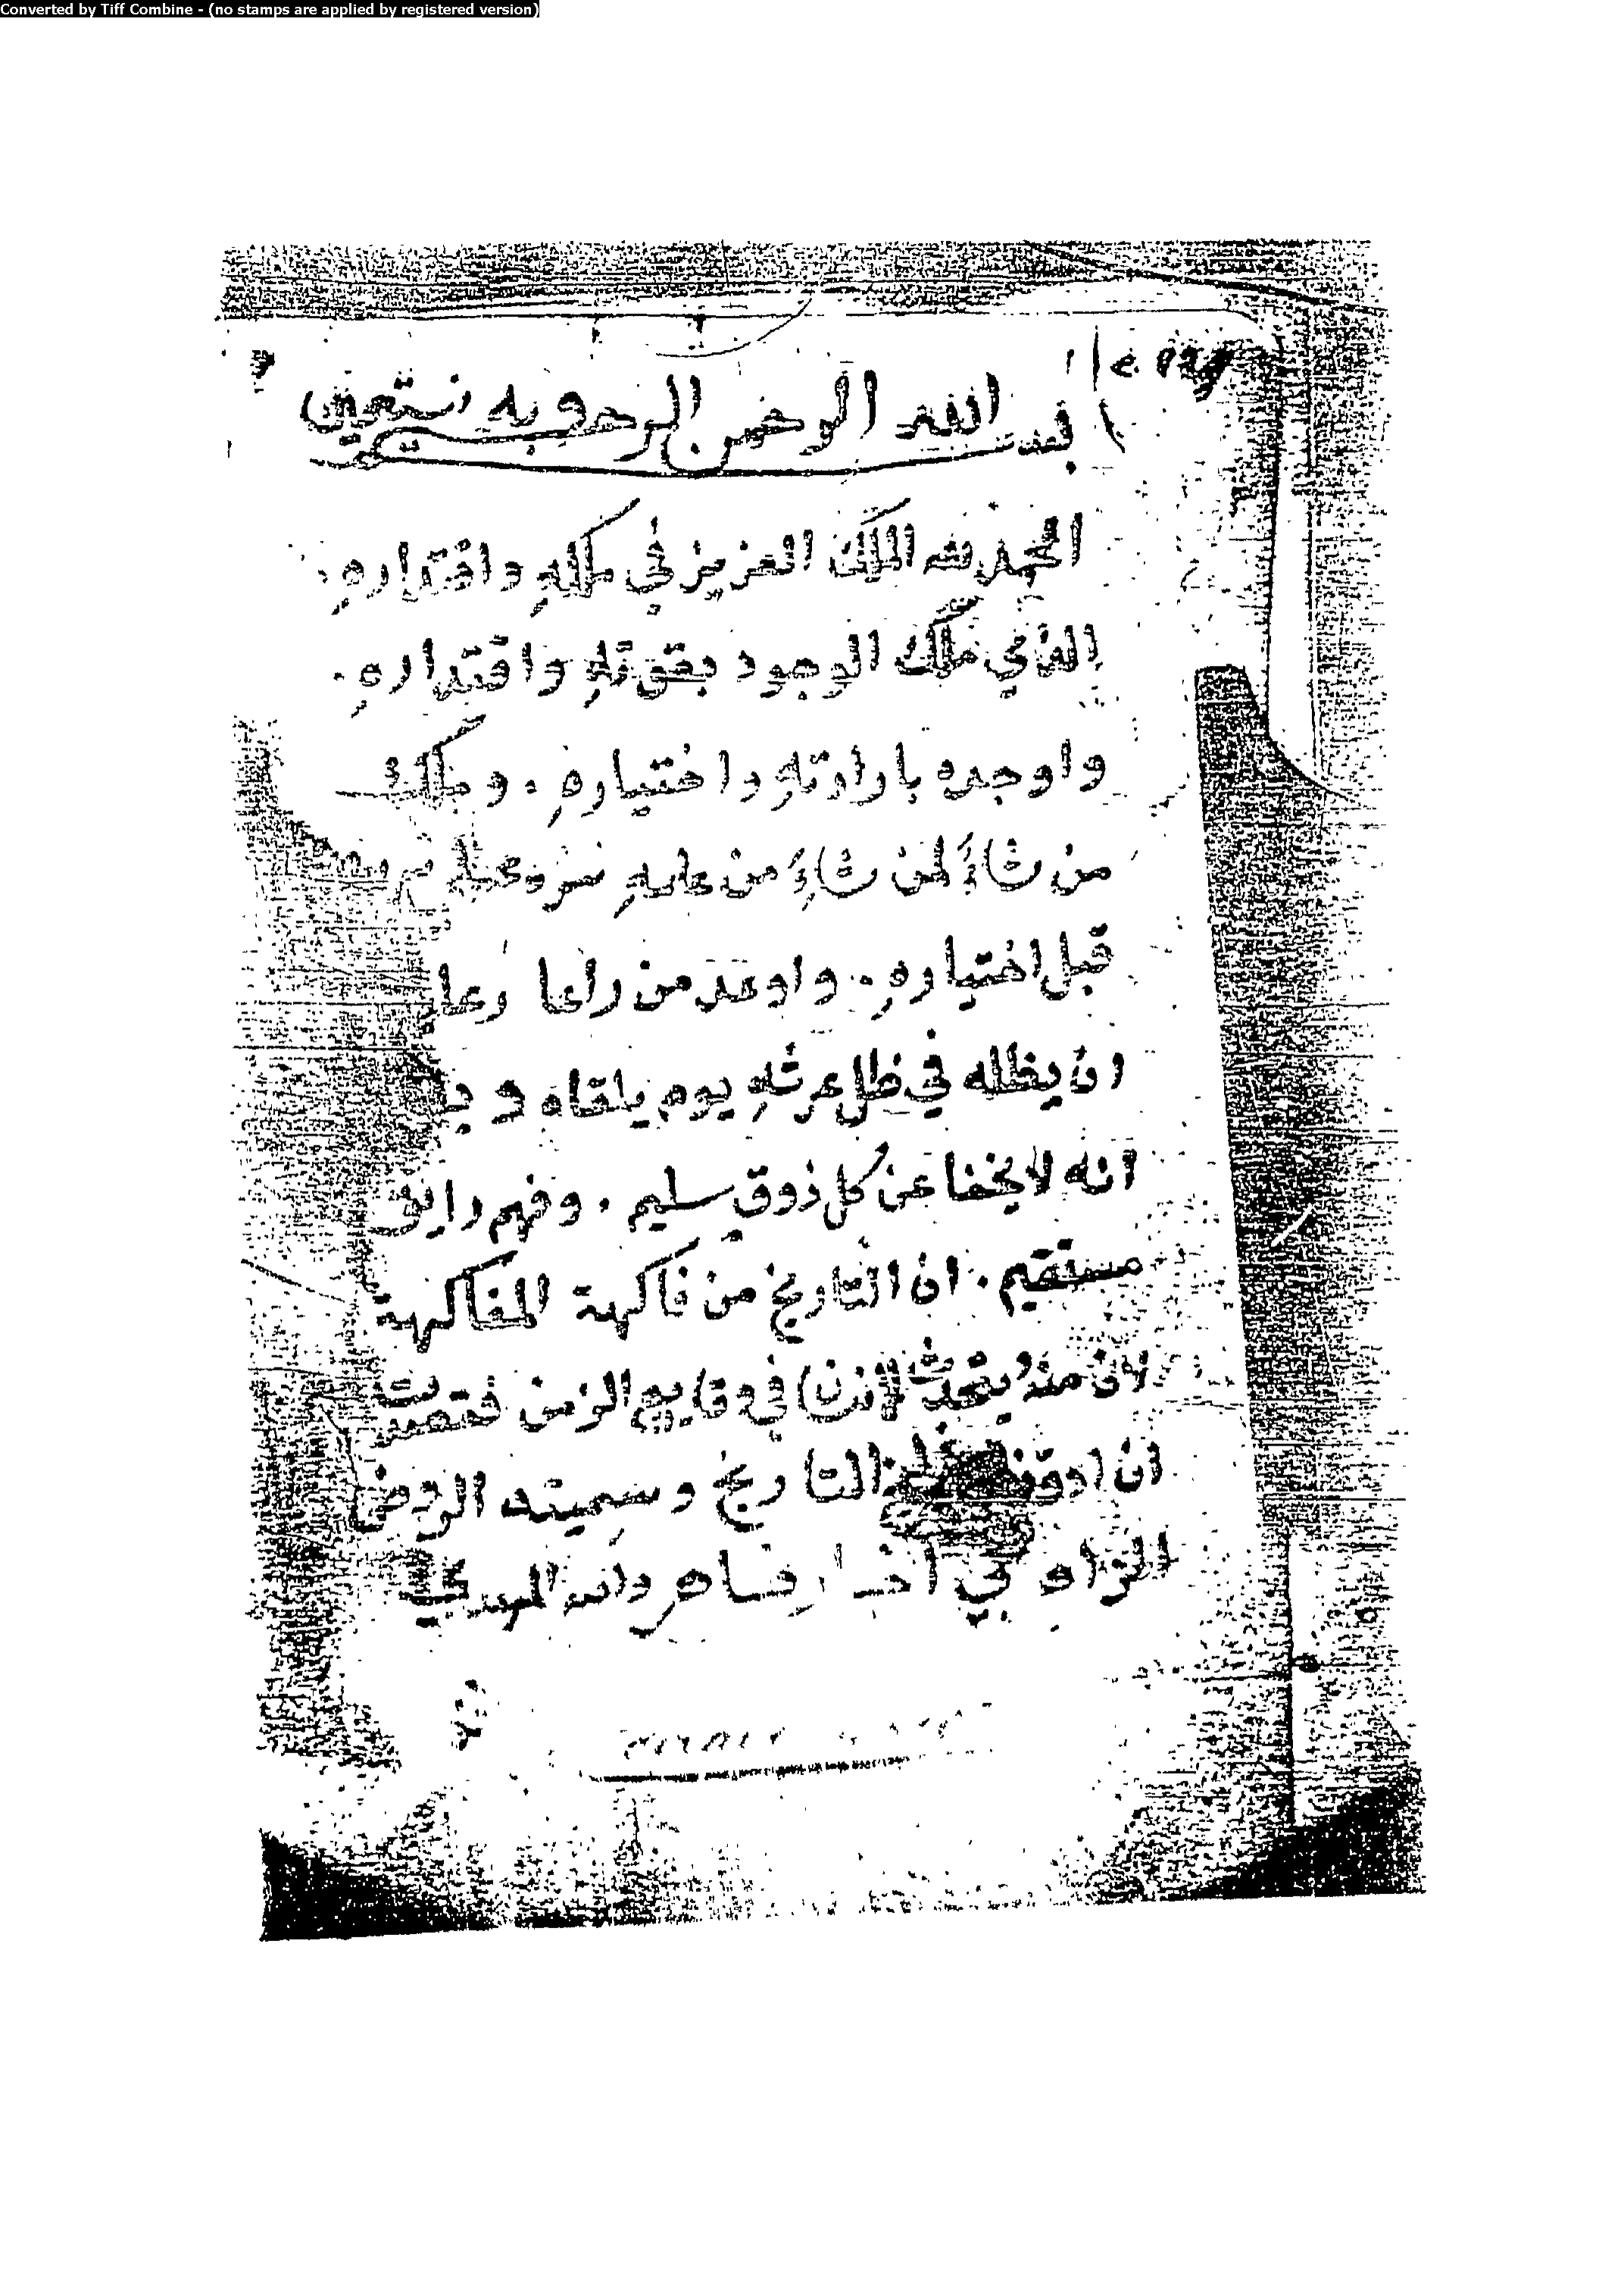 Converted by Tiff Combine - (no stamps are applied by registered version)
بسم الله الرحمن الرحيم وبه نستعين
الحمد لله الملك العزيز في ملكهِ واقتدارهِ.
الذي ملك الوجود بقوتهِ واقتدارهِ.
واوجده بارادتهِ واختيارهِ. وملك
من شاءَ لمن شاءَ من
قبل اختيارهِ. واوعد من راعا رعا
ان يظله في ظل عرشهِ يوم يلقاه و
انه لا يخفا عن كل ذوق سليم. وفهم رايق
مستقيم. ان التاريخ من فاكهة المفاكهة
لان منه يتحدث الانسان في وقايع الزمن فقصدت
ان التاريخ وسميته الروض
الزاهر في اخبار ضاهر والله